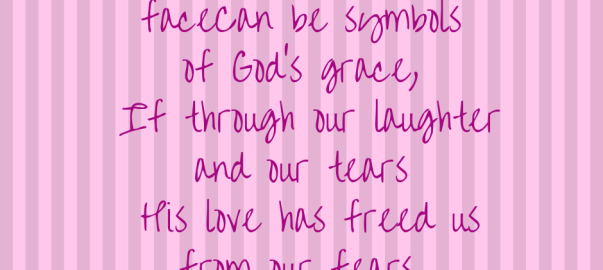 faceCan be symbols
of God's grace,
If through our laughter
and our tears
His love has freed us
from our fears